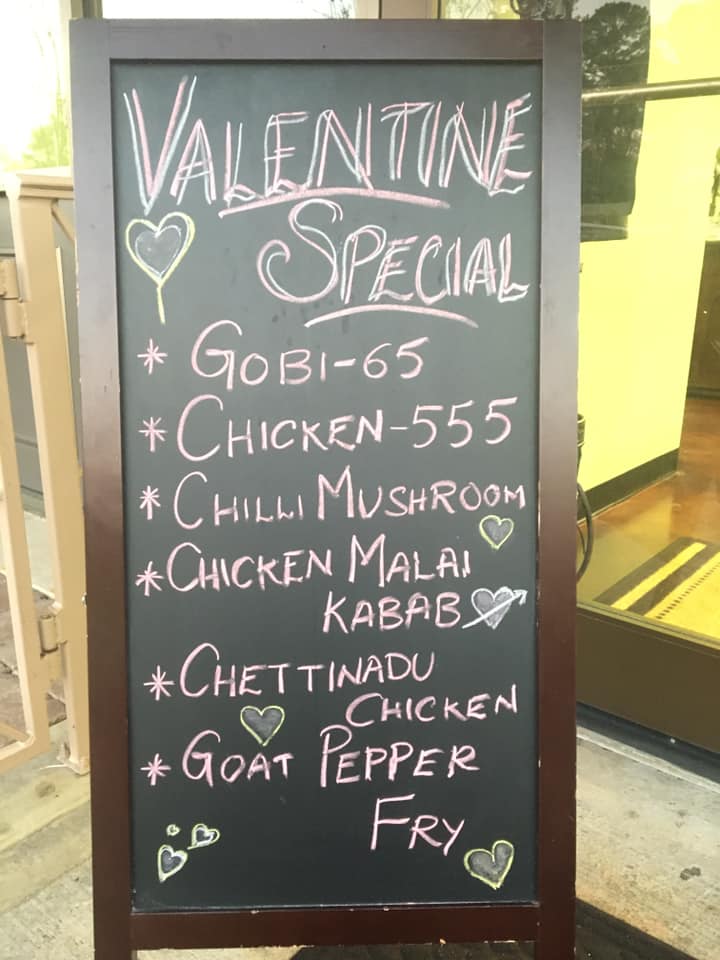 VALENTINE
SPECIAL
* GOBI-65
* CHICKEN-555
* CHILLI MUSHROOM
* CHICKEN MALAI
KABAB
* CHETTINADU
CHICKEN
* GOAT PEPPER
FRY